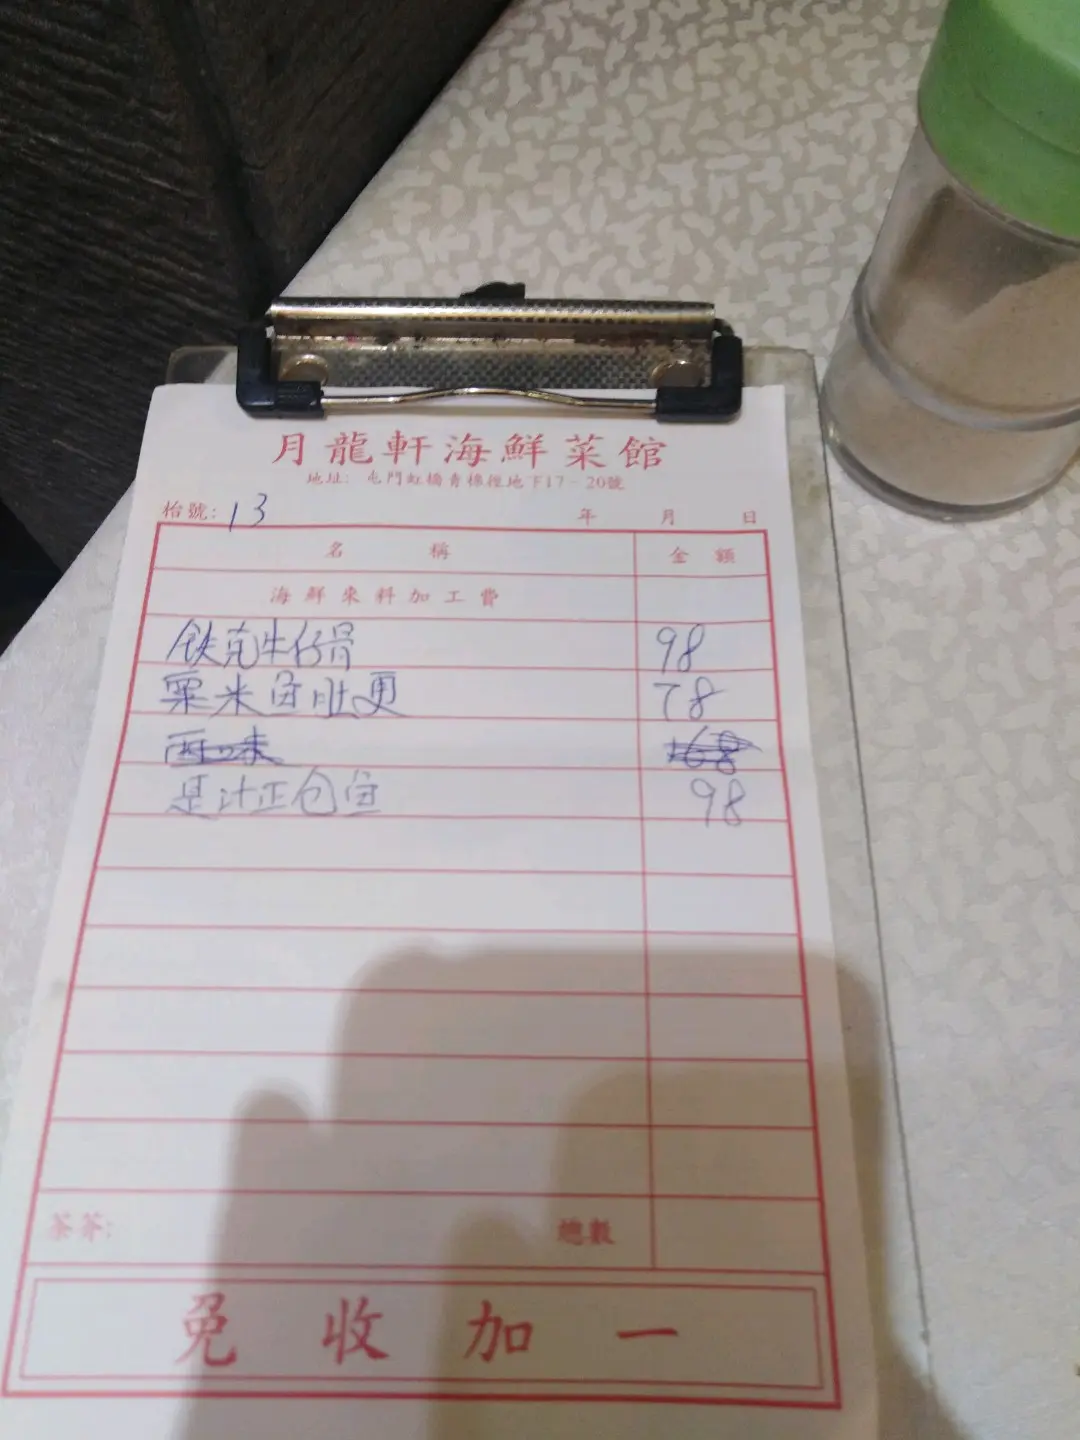 月龍軒海鮮菜館
地址: 屯門虹橋青橡徑地下17-20號
枱號: 13 年 月 日
名 稱 金 額
海鮮來料加工費
鉄克牛仔骨 98
粟米魚肚更 78
两味 168
是汁正仓魚 98
茶芥: 總數
免收加一